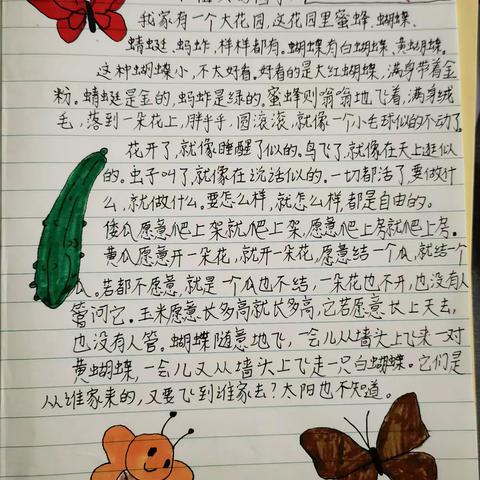 我家有一个大花园,这花园里蜜蜂、蝴蝶、
蜻蜓、蚂蚱,样样都有。蝴蝶有白蝴蝶、黄蝴蝶。
这种蝴蝶小,不太好看。好看的是大红蝴蝶,满身带着金
粉。蜻蜓是金的,蚂蚱是绿的。蜜蜂则嗡嗡地飞着,满身绒
毛,落到一朵花上,胖乎乎,圆滚滚,就像一个小毛球似的不动了。
花开了,就像睡醒了似的。鸟飞了,就像在天上逛似
的。虫子叫了,就像在说话似的。一切都活了,要做什
么,就做什么。要怎么样,就怎么样,都是自由的。
倭瓜愿意爬上架就爬上架,愿意爬上房就爬上房。
黄瓜愿意开一朵花,就开一朵花,愿意结一个瓜,就结一个
瓜。若都不愿意,就是一个瓜也不结,一朵花也不开,也没有人
管问它。玉米愿意长多高就长多高,它若愿意长上天去,
也没有人管。蝴蝶随意地飞,一会儿从墙头上飞来一对
黄蝴蝶,一会儿又从墙头上飞走一只白蝴蝶。它们是
从谁家来的,又要飞到谁家去?太阳也不知道。